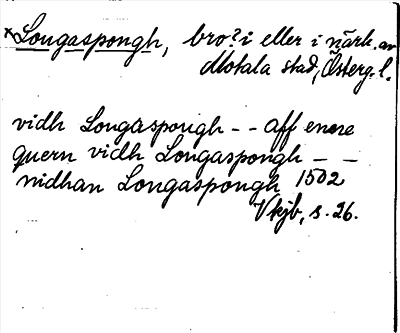 ×Longaspongh, bro? i eller i närh. av
Motala stad, Österg. l.
vidh Longaspongh - - aff enere
quern vidh Longaspongh - -
nidhan Longaspongh 1502
Vkjb, s. 26.